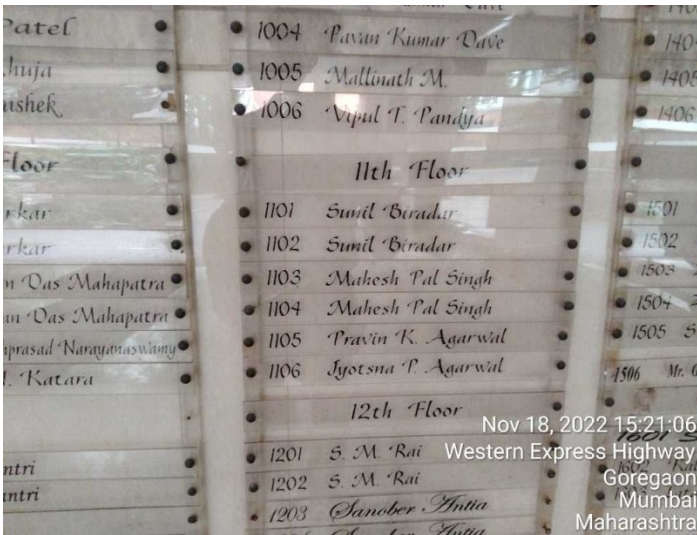 Patel
huja
Floor
rkar
rkar
n Das Mahapatra
an Das Mahapatra
nprasad Narayanaswamy
Katara
ntri
antri
1004 Pavan Kumar Dave
1005 Mallinath M.
1006 Vipul T. Pandya
11th Floor
1101 Sunil Biradar
1102 Sunil Biradar
1103 Mahesh Pal Singh
1104 Mahesh Pal Singh
1105 Pravin K. Agarwal
1106 Jyotsna P. Agarwal
12th Floor
1201 S. M. Rai
1202 S. M. Rai
1203 Sanober Antia
Sanober Antia
1405
1406
1501
1502
1503
1504
1505 S
1506 Mr.
1601 S
1602
Nov 18, 2022 15:21:06
Western Express Highway
Goregaon
Mumbai
Maharashtra